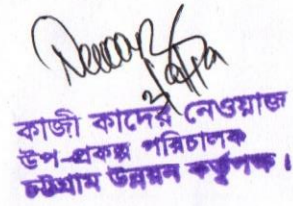 কাজী কাদের নেওয়াজ
উপ-প্রকল্প পরিচালক
চট্টগ্রাম উন্নয়ন কর্তৃপক্ষ।